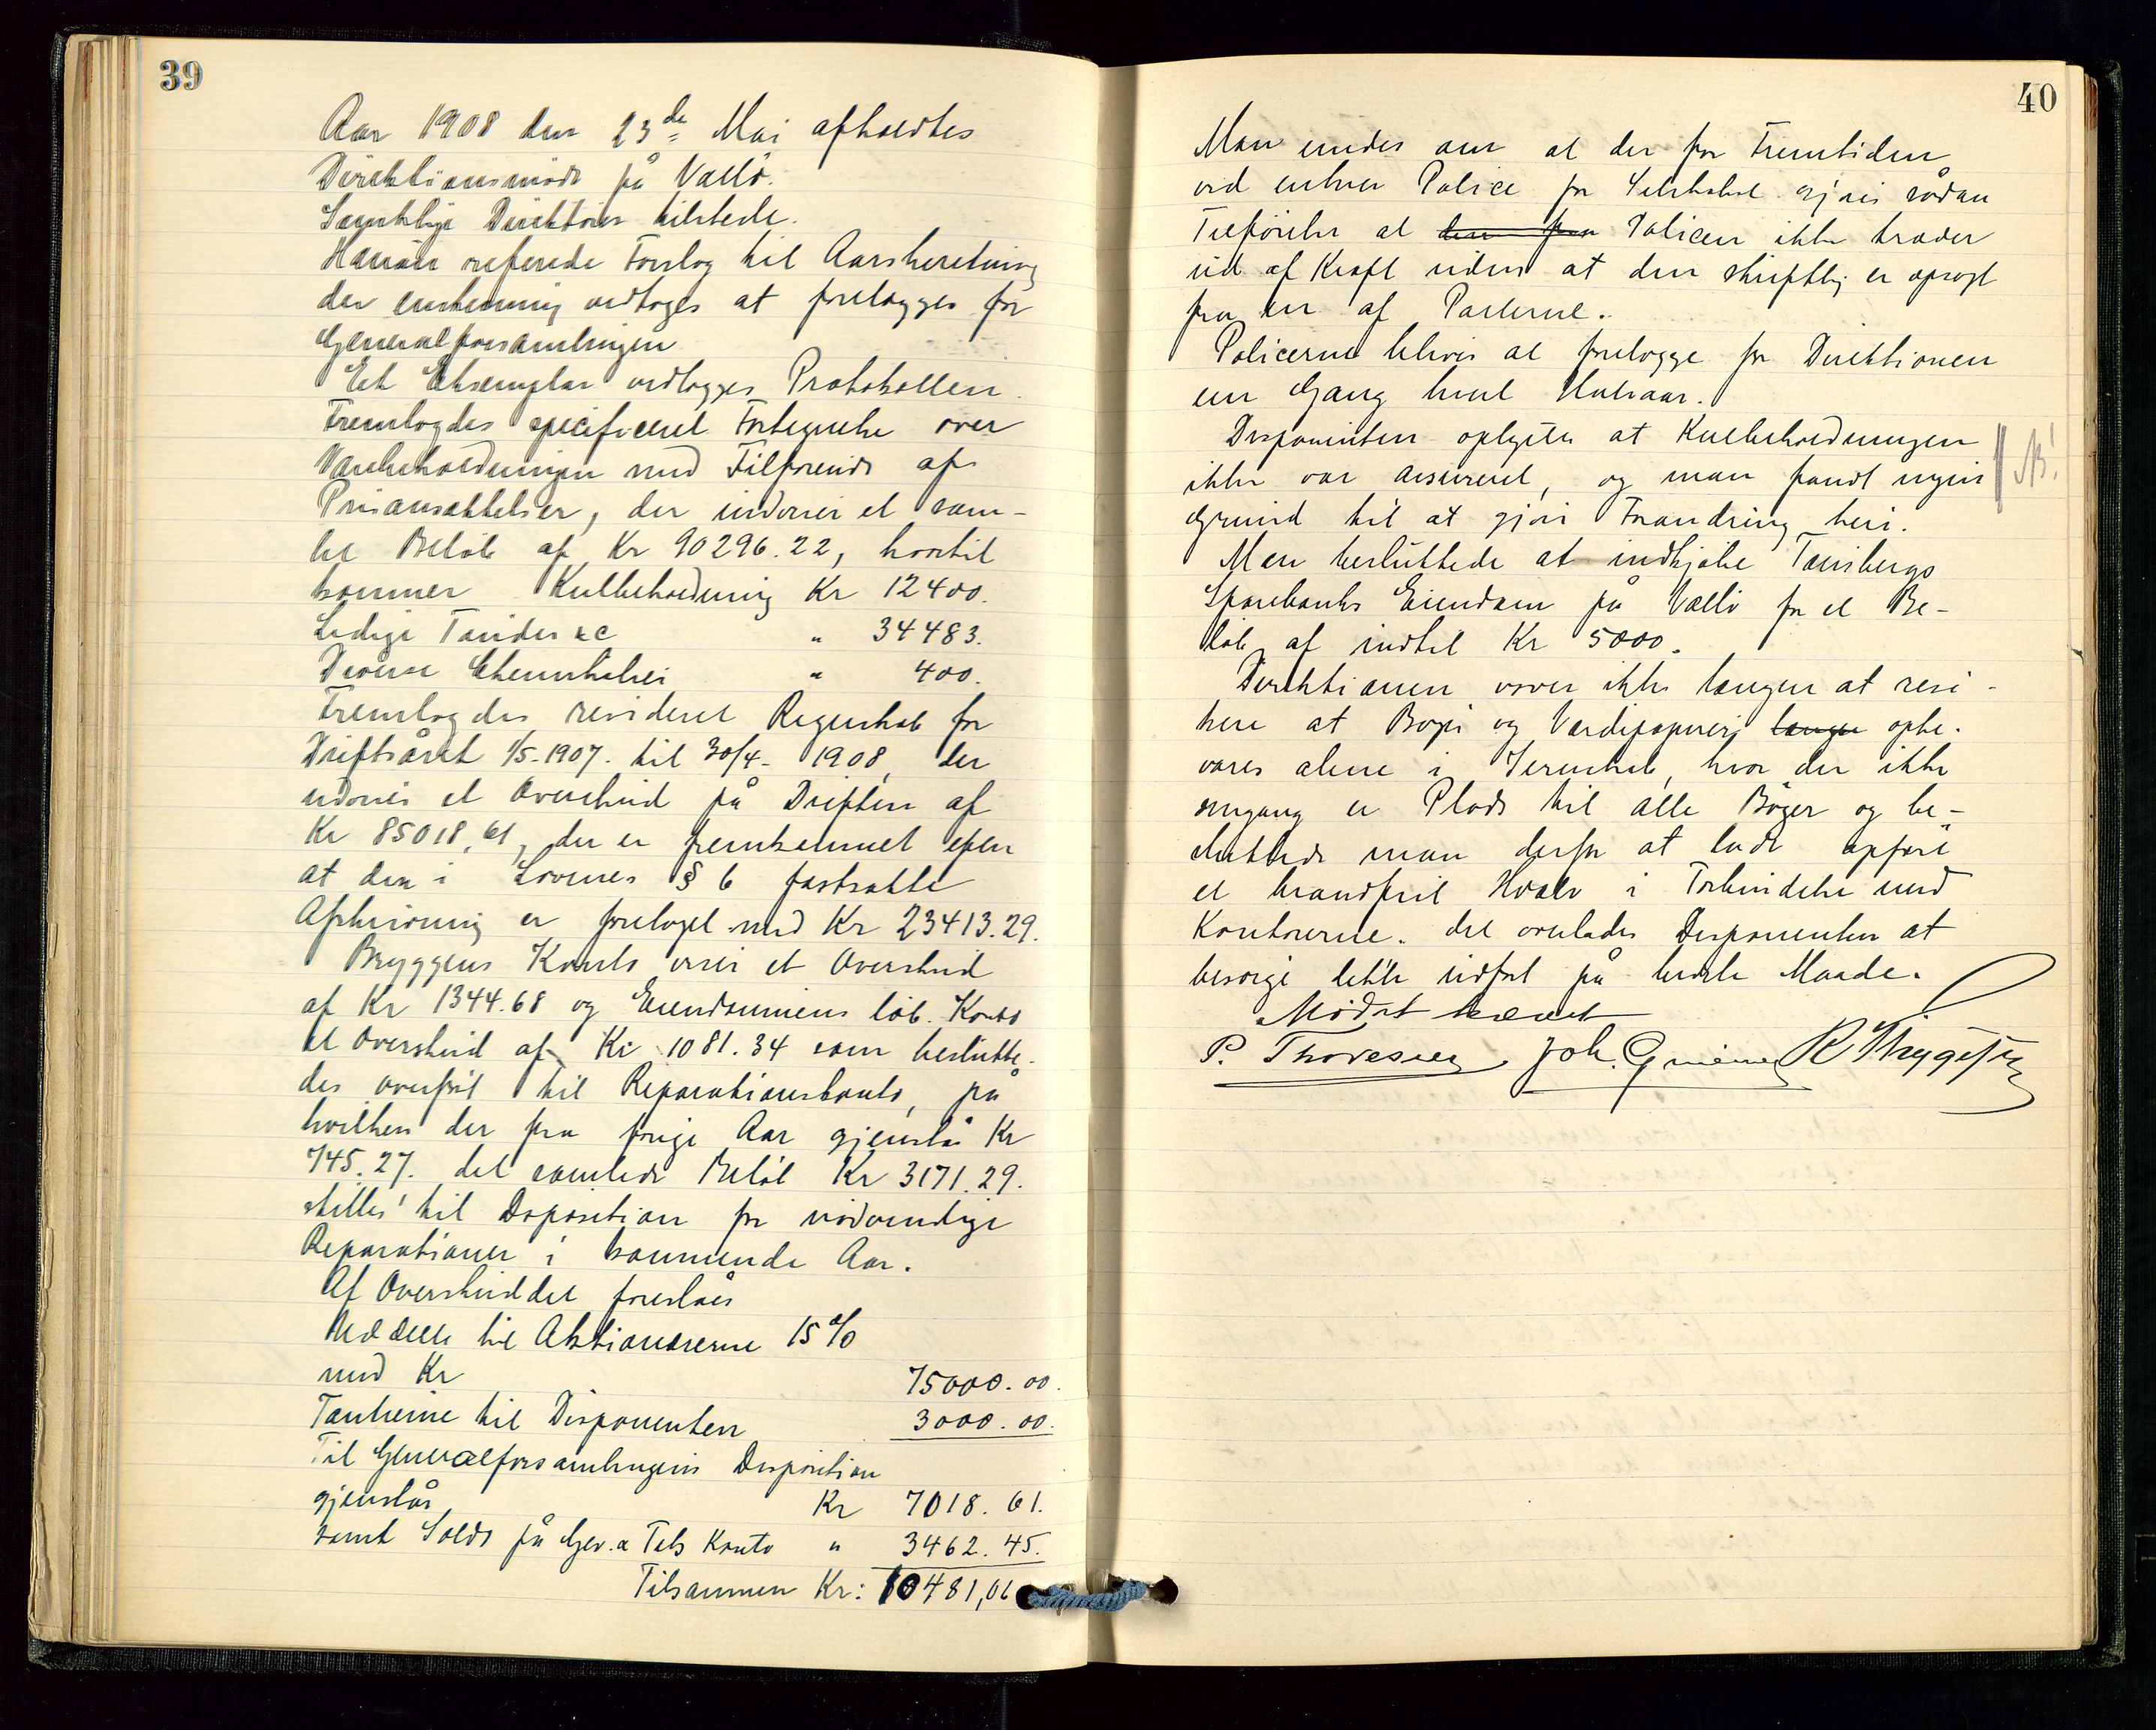 39
Aar 1908 den 23de Mai afholdtes
Direktionsmöde på Vallö.
Samtlige Direktörer tilstede.
refererede Forslag til Aarsberetning
der enstemmig vedtoges at forelægges for
Generalforsamlingen
Et Eksemplar vedlægges Protokollen.
Fremlagdes specificeret Fortegnelse over
Varebeholdningen med Tilföiende af
Prisansættelser, der udviser et sam-
let Belöb af Kr 90296.22, hvortil
kommer Kulbeholdning Kr 12400.
Ledige Tönder &c " 34483.
Diverse Chemikalier " 400.
Fremlagdes revideret Regnskab for
Driftsåret 1/5-1907. til 30/4- 1908, der
udviser et Overskud på Driften af
Kr 85018,61, der er fremkommet efter
at den i Lovenes § 6 fastsatte
Afskrivning er foretaget med Kr 23413.29.
Bryggens Konto viser et Overskud
af Kr 1344.68 og Eiendommens löb. Konto
et Overskud af Kr 1081.34 som beslutte-
des overfört til Reparationskonto, på
hvilken der fra forige Aar gjenstår Kr
745.27. det samlede Belöb Kr 3171.29.
stilles til Disposition for nödvendige
Reparationer i kommende Aar.
Af Overskuddet foreslåes
Uddelt til Aktionærerne 15%
med Kr 75000.00.
Tantieme til Disponenten 3000.00.
Til Generalforsamlingens Disposition
gjenstår Kr 7018.61.
samt Saldo på Gev. & Tabs Konto " 3462.45.
Tilsammen Kr: 10481,06
40
Man enedes om at der for Fremtiden
ved enhver Police for Selskabet gjöres sådan
Tilföielse at den fra Policen ikke træder
ud af Kraft uden at den skriftlig er opsagt
fra en af Parterne.
Policerne bliver at forelægge for Direktionen
een Gang hvert Halvaar.
Disponenten oplyste at Kulbeholdningen
ikke var assureret, og man fandt ingen
NB!
Grund til at gjöre Forandring heri.
Man besluttede at indkjöbe Tönsbergs
Sparebanks Eiendom på Vallö for et Be-
löb af indtil Kr 5000.
Direktionen vover ikke længer at resi-
kere at Böger og Værdipapirer længer opbe-
vares alene i Jernskab, hvor der ikke
engang er Plads til alle Böger og be-
sluttede man derfor at lade opföre
et brandfrit Hvælv i Forbindelse med
Kontorerne. det overlades Disponenten at
besörge dette udfört på bedste Maade.
Mödet hævet
P. Thoresen Joh. R Thygesen